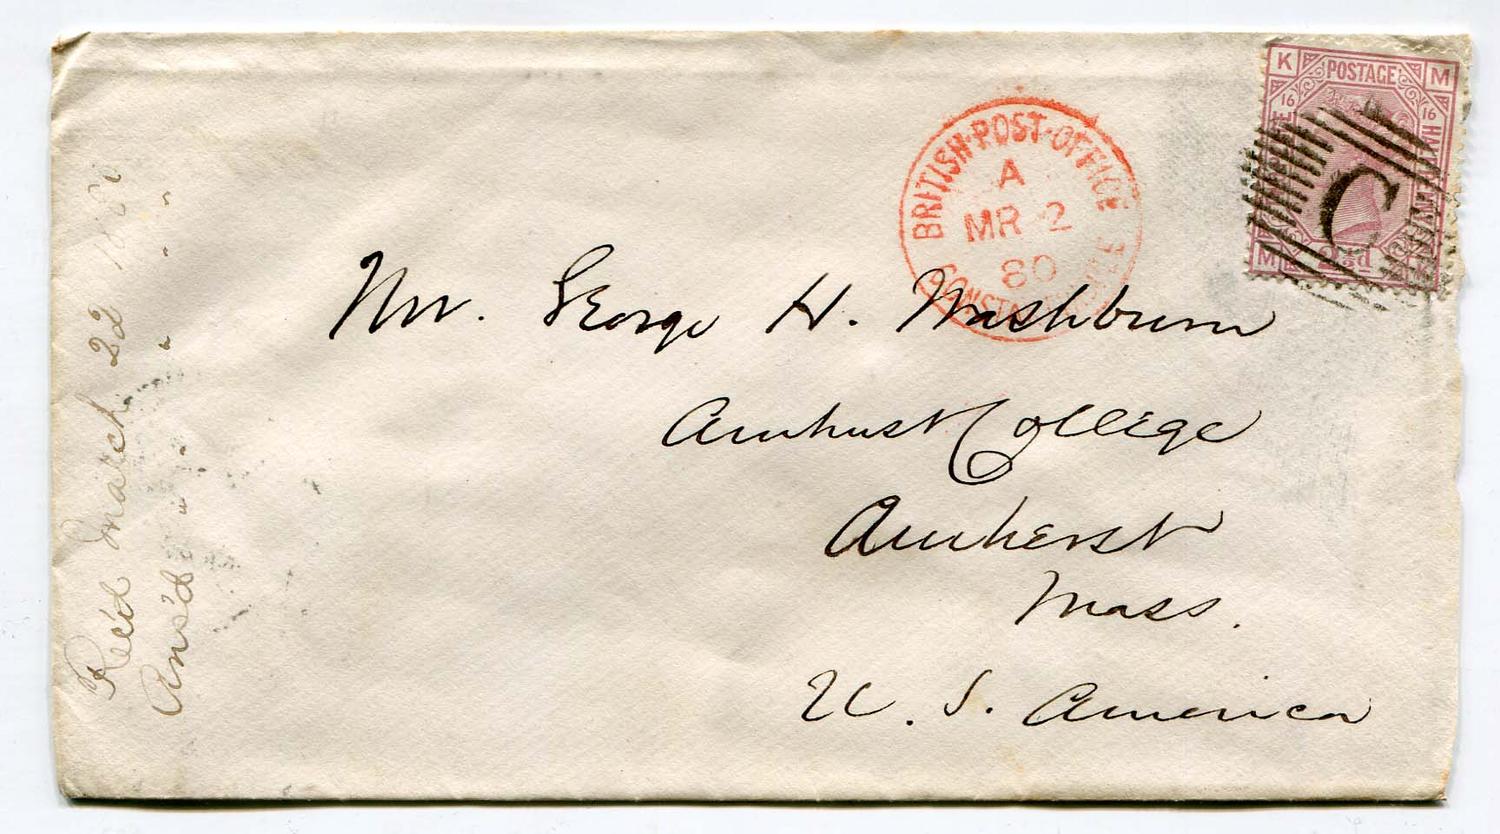 K POSTAGE M
16 16
C
M 2½d K
BRITISH·POST·OFFICE
A
MR 2
80
Mr. George H. Washburn
Amherst College
Amherst
Mass.
U. S. America
Rec'd March 22 1880
Ans'd " " " " "